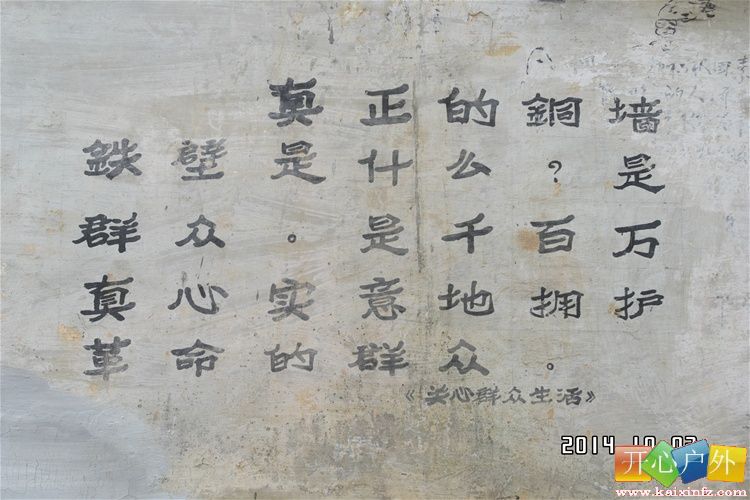 真正的銅墙
鉄壁是什么？是
群众。是千百万
真心实意地拥护
革命的群众。
《关心群众生活》
2014 10
开心户外
www.kaixinfz.com